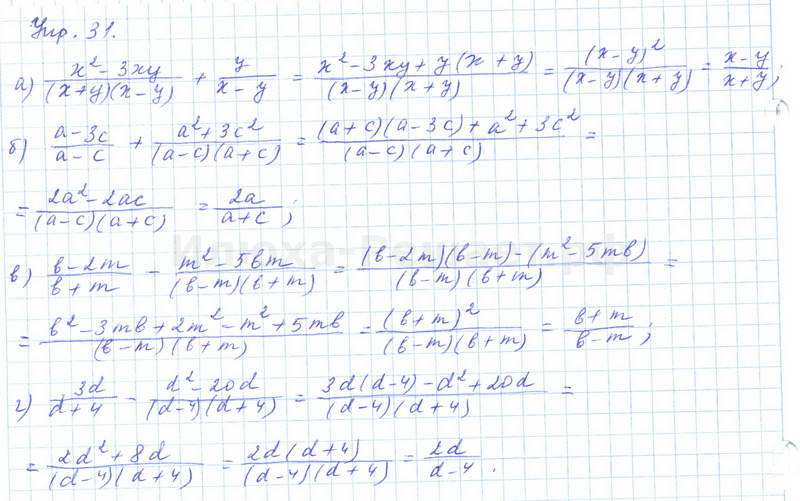 Упр. 31.
а) (x² - 3xy)/((x+y)(x-y)) + y/(x-y) = (x² - 3xy + y(x+y))/((x-y)(x+y)) = (x-y)²/((x-y)(x+y)) = (x-y)/(x+y);
б) (a-3c)/(a-c) + (a²+3c²)/((a-c)(a+c)) = ((a+c)(a-3c)+a²+3c²)/((a-c)(a+c)) =
= (2a²-2ac)/((a-c)(a+c)) = 2a/(a+c);
в) (в-2m)/(в+m) - (m²-5вm)/((в-m)(в+m)) = ((в-2m)(в-m)-(m²-5mв))/((в-m)(в+m)) =
= (в²-3mв+2m²-m²+5mв)/((в-m)(в+m)) = (в+m)²/((в-m)(в+m)) = (в+m)/(в-m);
г) 3d/(d+4) - (d²-20d)/((d-4)(d+4)) = (3d(d-4)-d²+20d)/((d-4)(d+4)) =
= (2d²+8d)/((d-4)(d+4)) = 2d(d+4)/((d-4)(d+4)) = 2d/(d-4).